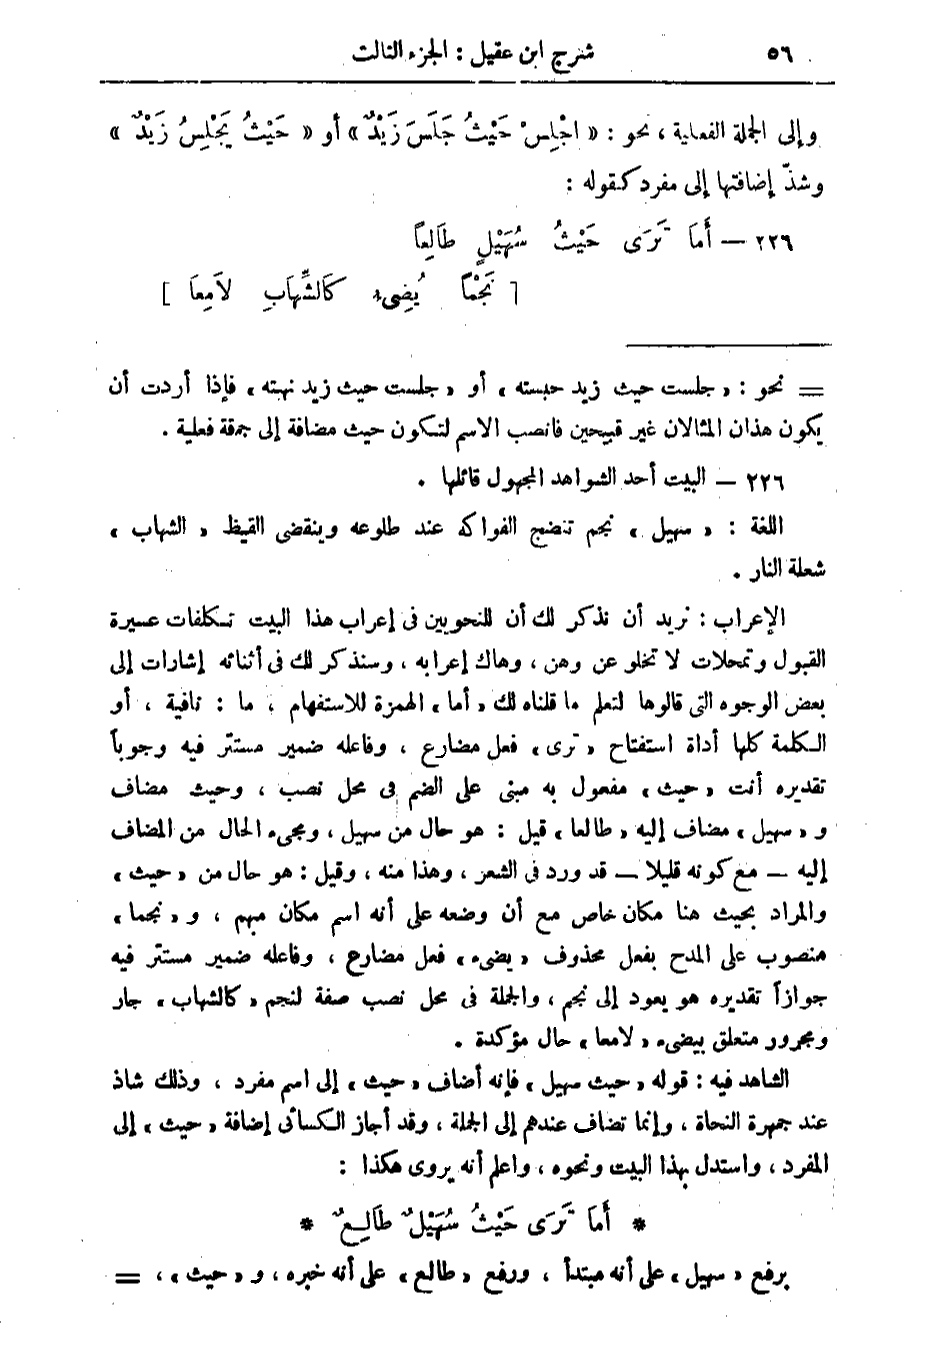 ٥٦ شرح ابن عقيل : الجزء الثالث
وإلى الجملة الفعلية ، نحو : « اجْلِسْ حَيْثُ جَلَسَ زَيْدٌ » أو « حَيْثُ يَجْلِسُ زَيْدٌ »
وشذّ إضافتها إلى مفرد كقوله :
٢٢٦ — أَمَا تَرَى حَيْثُ سُهَيْلٍ طَالِعاً
[ نَجْماً يُضِىءُ كَالشِّهَابِ لاَمِعَا ]
= نحو : « جلست حيث زيد حبسته » أو « جلست حيث زيد نهته » فإذا أردت أن
يكون هذان المثالان غير قبيحين فانصب الاسم لتكون حيث مضافة إلى جملة فعلية .
٢٢٦ — البيت أحد الشواهد المجهول قائلها .
اللغة : « سهيل » نجم تنضج الفواكه عند طلوعه وينقضى القيظ « الشهاب »
شعلة النار .
الإعراب : نريد أن نذكر لك أن للنحويين فى إعراب هذا البيت تكلفات عسيرة
القبول وتمحلات لا تخلو عن وهن ، وهاك إعرابه ، وسنذكر لك فى أثنائه إشارات إلى
بعض الوجوه التى قالوها لتعلم ما قلناه لك « أما » الهمزة للاستفهام ، ما : نافية ، أو
الكلمة كلها أداة استفتاح « ترى » فعل مضارع ، وفاعله ضمير مستتر فيه وجوباً
تقديره أنت « حيث » مفعول به مبنى على الضم فى محل نصب ، وحيث مضاف
و « سهيل » مضاف إليه « طالعا » قيل : هو حال من سهيل ، ومجىء الحال من المضاف
إليه — مع كونه قليلا — قد ورد فى الشعر ، وهذا منه ، وقيل : هو حال من « حيث »
والمراد بحيث هنا مكان خاص مع أن وضعه على أنه اسم مكان مبهم ، و « نجما »
منصوب على المدح بفعل محذوف « يضىء » فعل مضارع ، وفاعله ضمير مستتر فيه
جوازاً تقديره هو يعود إلى نجم ، والجملة فى محل نصب صفة لنجم « كالشهاب » جار
ومجرور متعلق بيضىء « لامعا » حال مؤكدة .
الشاهد فيه : قوله « حيث سهيل » فإنه أضاف « حيث » إلى اسم مفرد ، وذلك شاذ
عند جمهرة النحاة ، وإنما تضاف عندهم إلى الجملة ، وقد أجاز الكسائى إضافة « حيث » إلى
المفرد ، واستدل بهذا البيت ونحوه ، واعلم أنه يروى هكذا :
* أَمَا تَرَى حَيْثُ سُهَيْلٌ طَالِعٌ *
برفع « سهيل » على أنه مبتدأ ، ورفع « طالع » على أنه خبره ، و « حيث » ، =